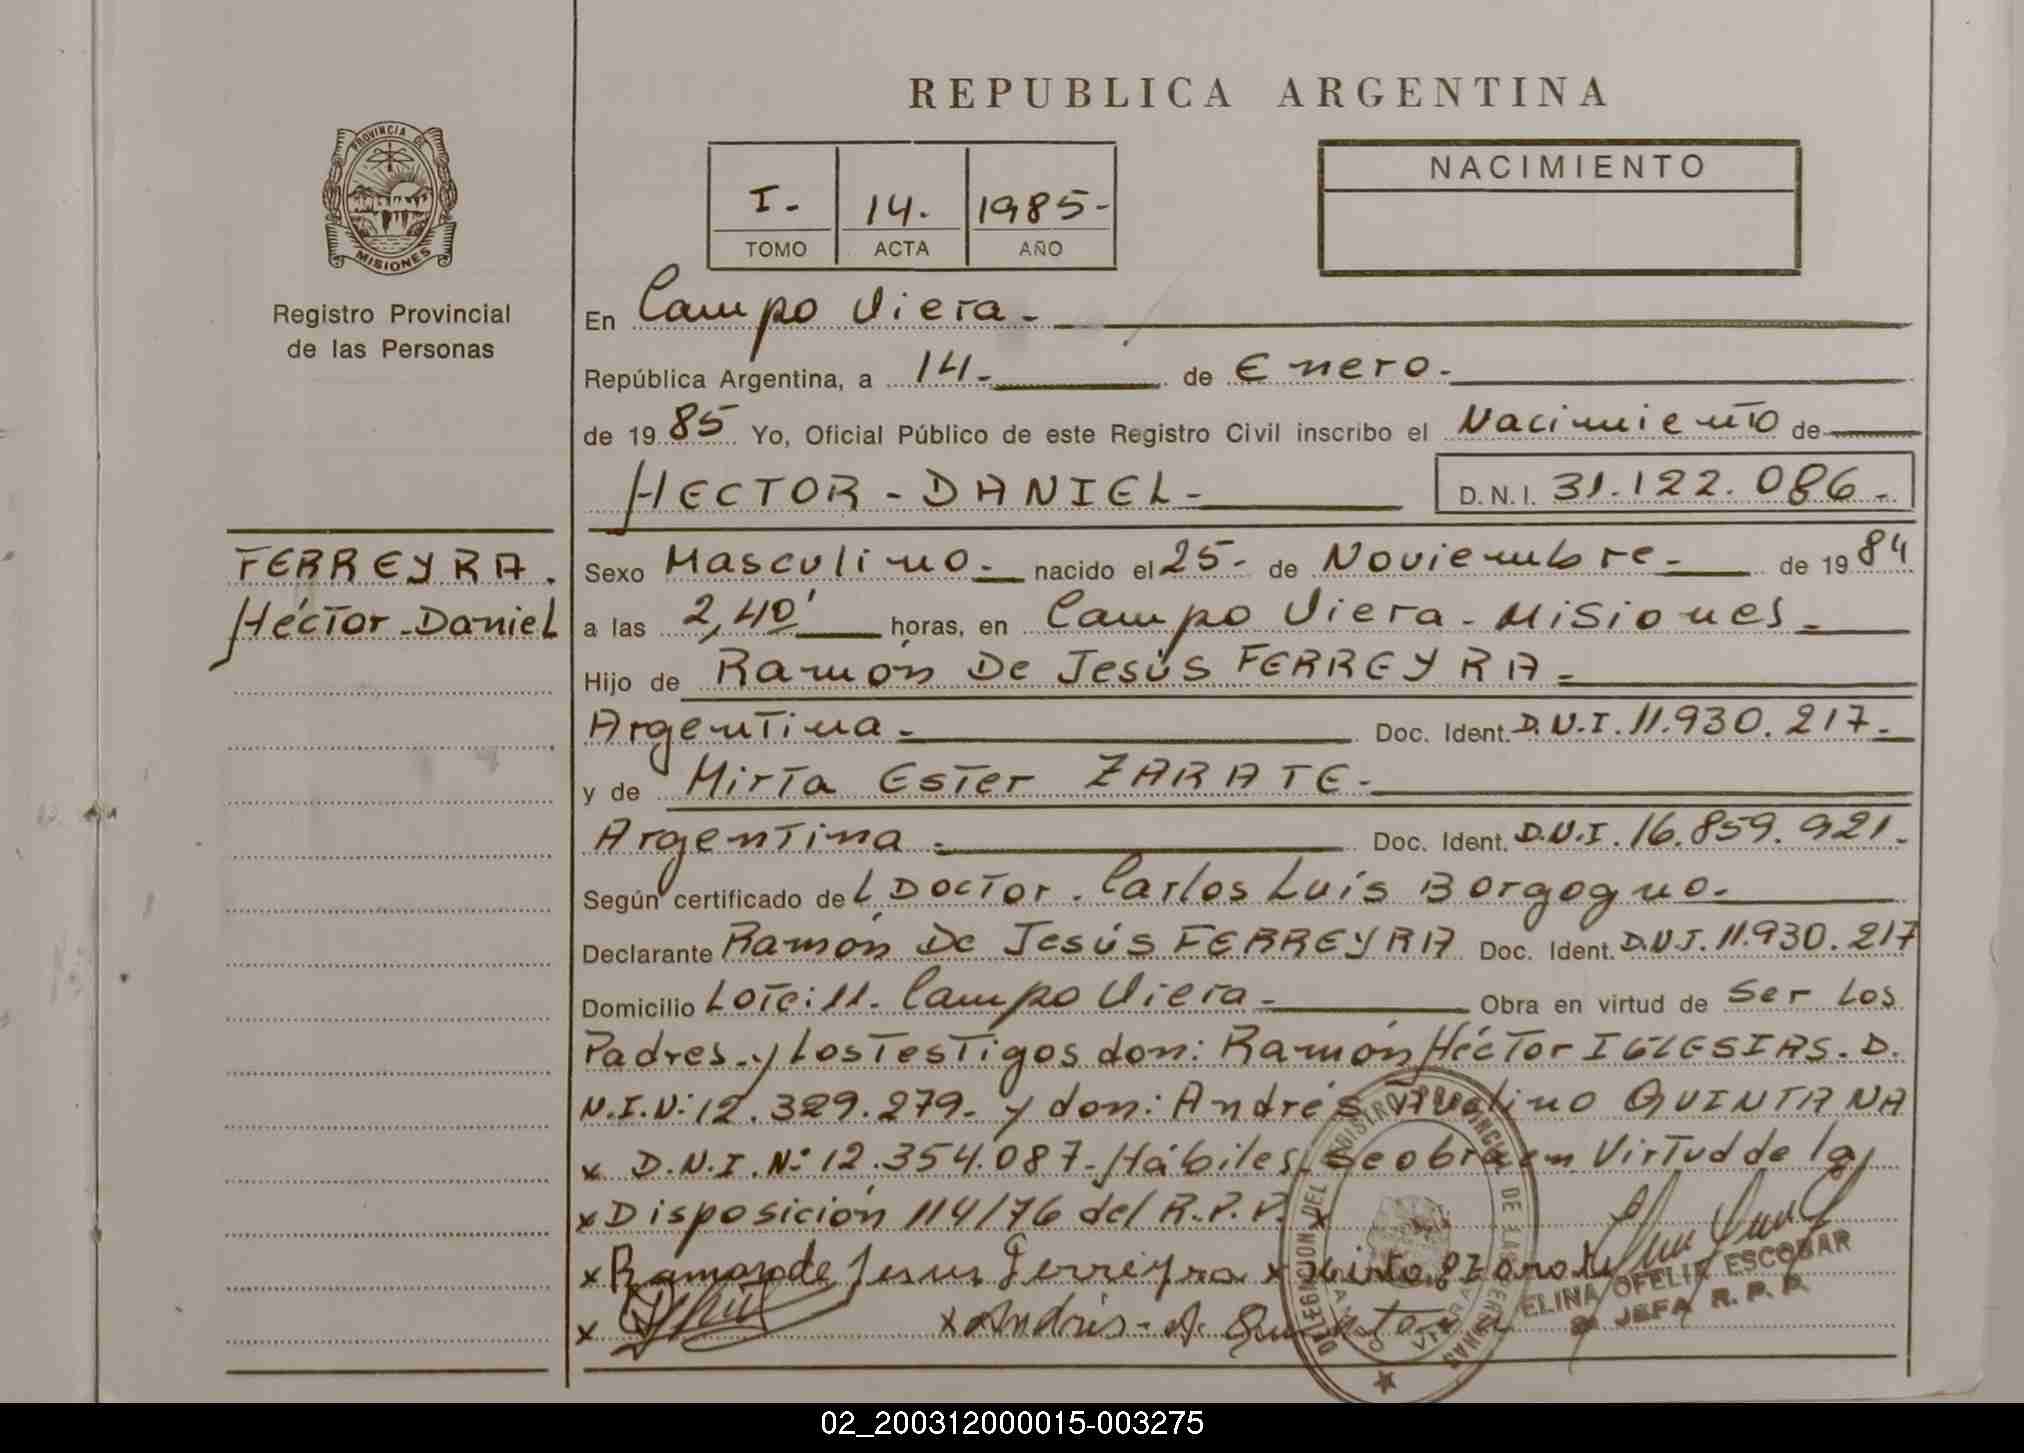 REPUBLICA ARGENTINA
PROVINCIA DE
MISIONES
Registro Provincial
de las Personas
I.-
14.
1985-
TOMO
ACTA
AÑO
NACIMIENTO
En Campo Viera.-
República Argentina, a 14.- de Enero.-
de 1985 Yo, Oficial Público de este Registro Civil inscribo el Nacimiento de
HECTOR - DANIEL.- D.N.I. 31.122.086.-
FERREYRA.
Héctor-Daniel
Sexo Masculino.- nacido el 25- de Noviembre.- de 1984
a las 2,40' horas, en Campo Viera - Misiones.-
Hijo de Ramón De Jesús FERREYRA.-
Argentina.- Doc. Ident. D.N.I. 11.930.217.-
y de Mirta Ester ZARATE.-
Argentina.- Doc. Ident. D.N.I. 16.859.921.-
Según certificado del Doctor. Carlos Luis Borgogno.-
Declarante Ramón De Jesús FERREYRA Doc. Ident. D.N.I. 11.930.217
Domicilio Lote: 11. Campo Viera.- Obra en virtud de Ser Los
Padres.y Los Testigos don: Ramón Héctor IGLESIAS. D.
N.I.N: 12.329.279.- y don: Andrés Avelino QUINTANA
x D.N.I.N: 12.354.087.-Hábiles. Se obra en Virtud de la
x Disposición 114/76 del R.P.P. x
x Ramon de Jesus Ferreyra x Mirta E Zarate
x x Andrés - A. Quintana
DELEGACION DEL REGISTRO PROVINCIAL DE LAS PERSONAS
CAMPO VIERA
ELINA OFELIA ESCOBAR
JEFA R. P. P.
02_200312000015-003275